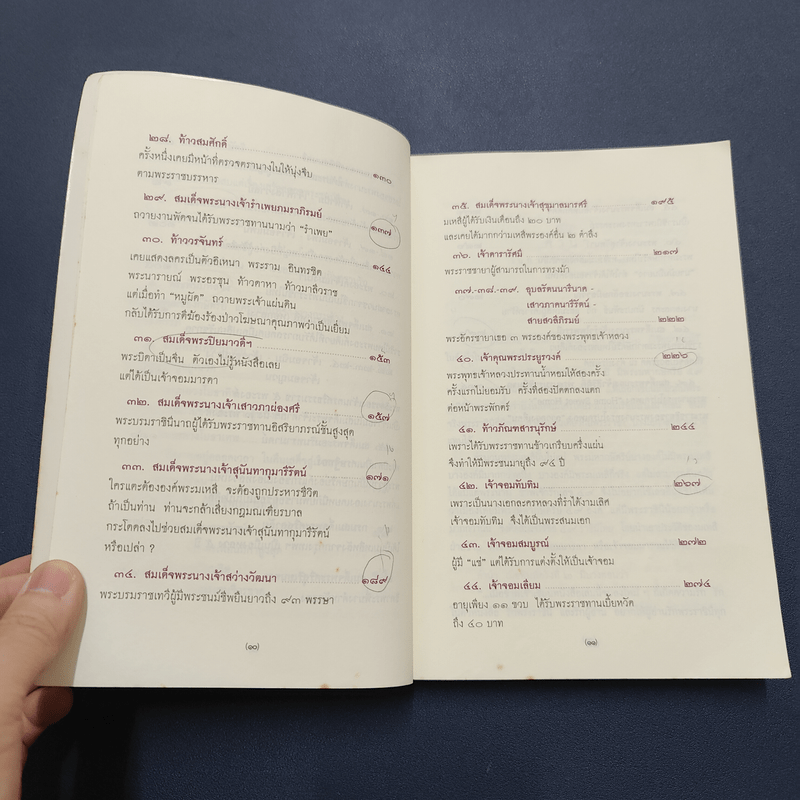 ๒๘. ท้าวสมศักดิ์
ครั้งหนึ่งเคยมีหน้าที่ตรวจตรานางในให้นุ่งจีบ
ตามพระราชบรรหาร ๑๓๐
๒๙. สมเด็จพระนางเจ้ารำเพยภมราภิรมย์
ถวายงานพัดจนได้รับพระราชทานนามว่า "รำเพย" ๑๓๗
๓๐. ท้าววรจันทร์ ๑๔๔
เคยแสดงละครเป็นตัวอิเหนา พระราม อินทรชิต
พระนารายณ์ พระอรชุน ท้าวดาหา ท้าวมาลีวราช
แต่เมื่อทำ "หมูผัด" ถวายพระเจ้าแผ่นดิน
กลับได้รับการตีฆ้องร้องป่าวโฆษณาคุณภาพว่าเป็นเยี่ยม
๓๑. สมเด็จพระปิยมาวดีฯ ๑๕๓
พระบิดาเป็นจีน ตัวเองไม่รู้หนังสือเลย
แต่ได้เป็นเจ้าจอมมารดา
๓๒. สมเด็จพระนางเจ้าเสาวภาผ่องศรี ๑๕๗
พระบรมราชินีนาถผู้ได้รับพระราชทานอิสริยาภรณ์ชั้นสูงสุด
ทุกอย่าง
๓๓. สมเด็จพระนางเจ้าสุนันทากุมารีรัตน์ ๑๗๑
ใครแตะต้ององค์พระมเหสี จะต้องถูกประหารชีวิต
ถ้าเป็นท่าน ท่านจะกล้าเสี่ยงกฎมณเฑียรบาล
กระโดดลงไปช่วยสมเด็จพระนางเจ้าสุนันทากุมารีรัตน์
หรือเปล่า ?
๓๔. สมเด็จพระนางเจ้าสว่างวัฒนา ๑๘๙
พระบรมราชเทวีผู้มีพระชนม์ชีพยืนยาวถึง ๙๓ พรรษา
(๑๐)
๓๕. สมเด็จพระนางเจ้าสุขุมาลมารศรี ๑๙๕
มเหสีผู้ได้รับเงินเดือนถึง ๒๐ บาท
และเคยได้มากกว่ามเหสีพระองค์อื่น ๒ ตำลึง
๓๖. เจ้าดารารัศมี ๒๑๗
พระราชชายาผู้สามารถในการทรงม้า
๓๗.-๓๘.-๓๙. อุบลรัตนนารีนาค -
เสาวภาคนารีรัตน์ -
สายสวลีภิรมย์ ๒๒๒
พระอัครชายาเธอ ๓ พระองค์ของพระพุทธเจ้าหลวง
๔๐. เจ้าคุณพระประยูรวงศ์ ๒๒๘
พระพุทธเจ้าหลวงประทานน้ำหอมให้สองครั้ง
ครั้งแรกไม่ยอมรับ ครั้งที่สองปัดตกลงแตก
ต่อหน้าพระพักตร์
๔๑. ท้าวภัณฑสารนุรักษ์ ๒๔๔
เพราะได้รับพระราชทานข้าวเกรียบครึ่งแผ่น
จึงทำให้มีพระชนมายุถึง ๙๔ ปี
๔๒. เจ้าจอมทับทิม ๒๖๗
เพราะเป็นนางเอกละครหลวงที่รำได้งามเลิศ
เจ้าจอมทับทิม จึงได้เป็นพระสนมเอก
๔๓. เจ้าจอมสมบูรณ์ ๒๗๒
ผู้มี "แซ่" แต่ได้รับการแต่งตั้งให้เป็นเจ้าจอม
๔๔. เจ้าจอมเลียม ๒๗๔
อายุเพียง ๑๑ ขวบ ได้รับพระราชทานเบี้ยหวัด
ถึง ๔๐ บาท
(๑๑)